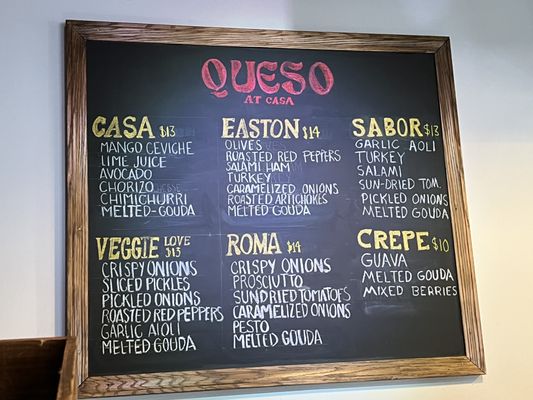 QUESO
AT CASA
CASA $13
MANGO CEVICHE
LIME JUICE
AVOCADO
CHORIZO
CHIMICHURRI
MELTED-GOUDA
EASTON $14
OLIVES
ROASTED RED PEPPERS
SALAMI HAM
TURKEY
CARAMELIZED ONIONS
ROASTED ARTICHOKES
MELTED GOUDA
SABOR $13
GARLIC AOLI
TURKEY
SALAMI
SUN-DRIED TOM.
PICKLED ONIONS
MELTED GOUDA
VEGGIE LOVE
$13
CRISPY ONIONS
SLICED PICKLES
PICKLED ONIONS
ROASTED RED PEPPERS
GARLIC AIOLI
MELTED GOUDA
ROMA $14
CRISPY ONIONS
PROSCIUTTO
SUNDRIED TOMATOES
CARAMELIZED ONIONS
PESTO
MELTED GOUDA
CREPE $10
GUAVA
MELTED GOUDA
MIXED BERRIES